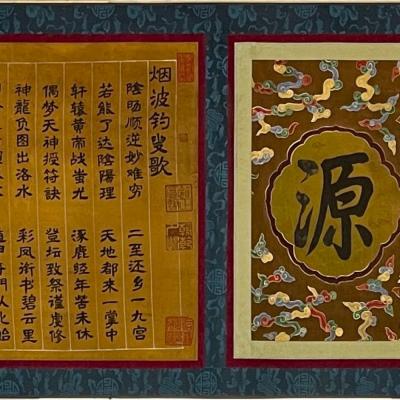 源
烟波钓叟歌
陰旸顺逆妙难穷 二至还乡一九宫
若能了达陰陽理 天地都來一掌中
轩辕黄帝战蚩尤 涿鹿经年苦未休
偶梦天神授符訣 登坛致祭谨虔修
神龍负图出洛水 彩凤衔书碧云里